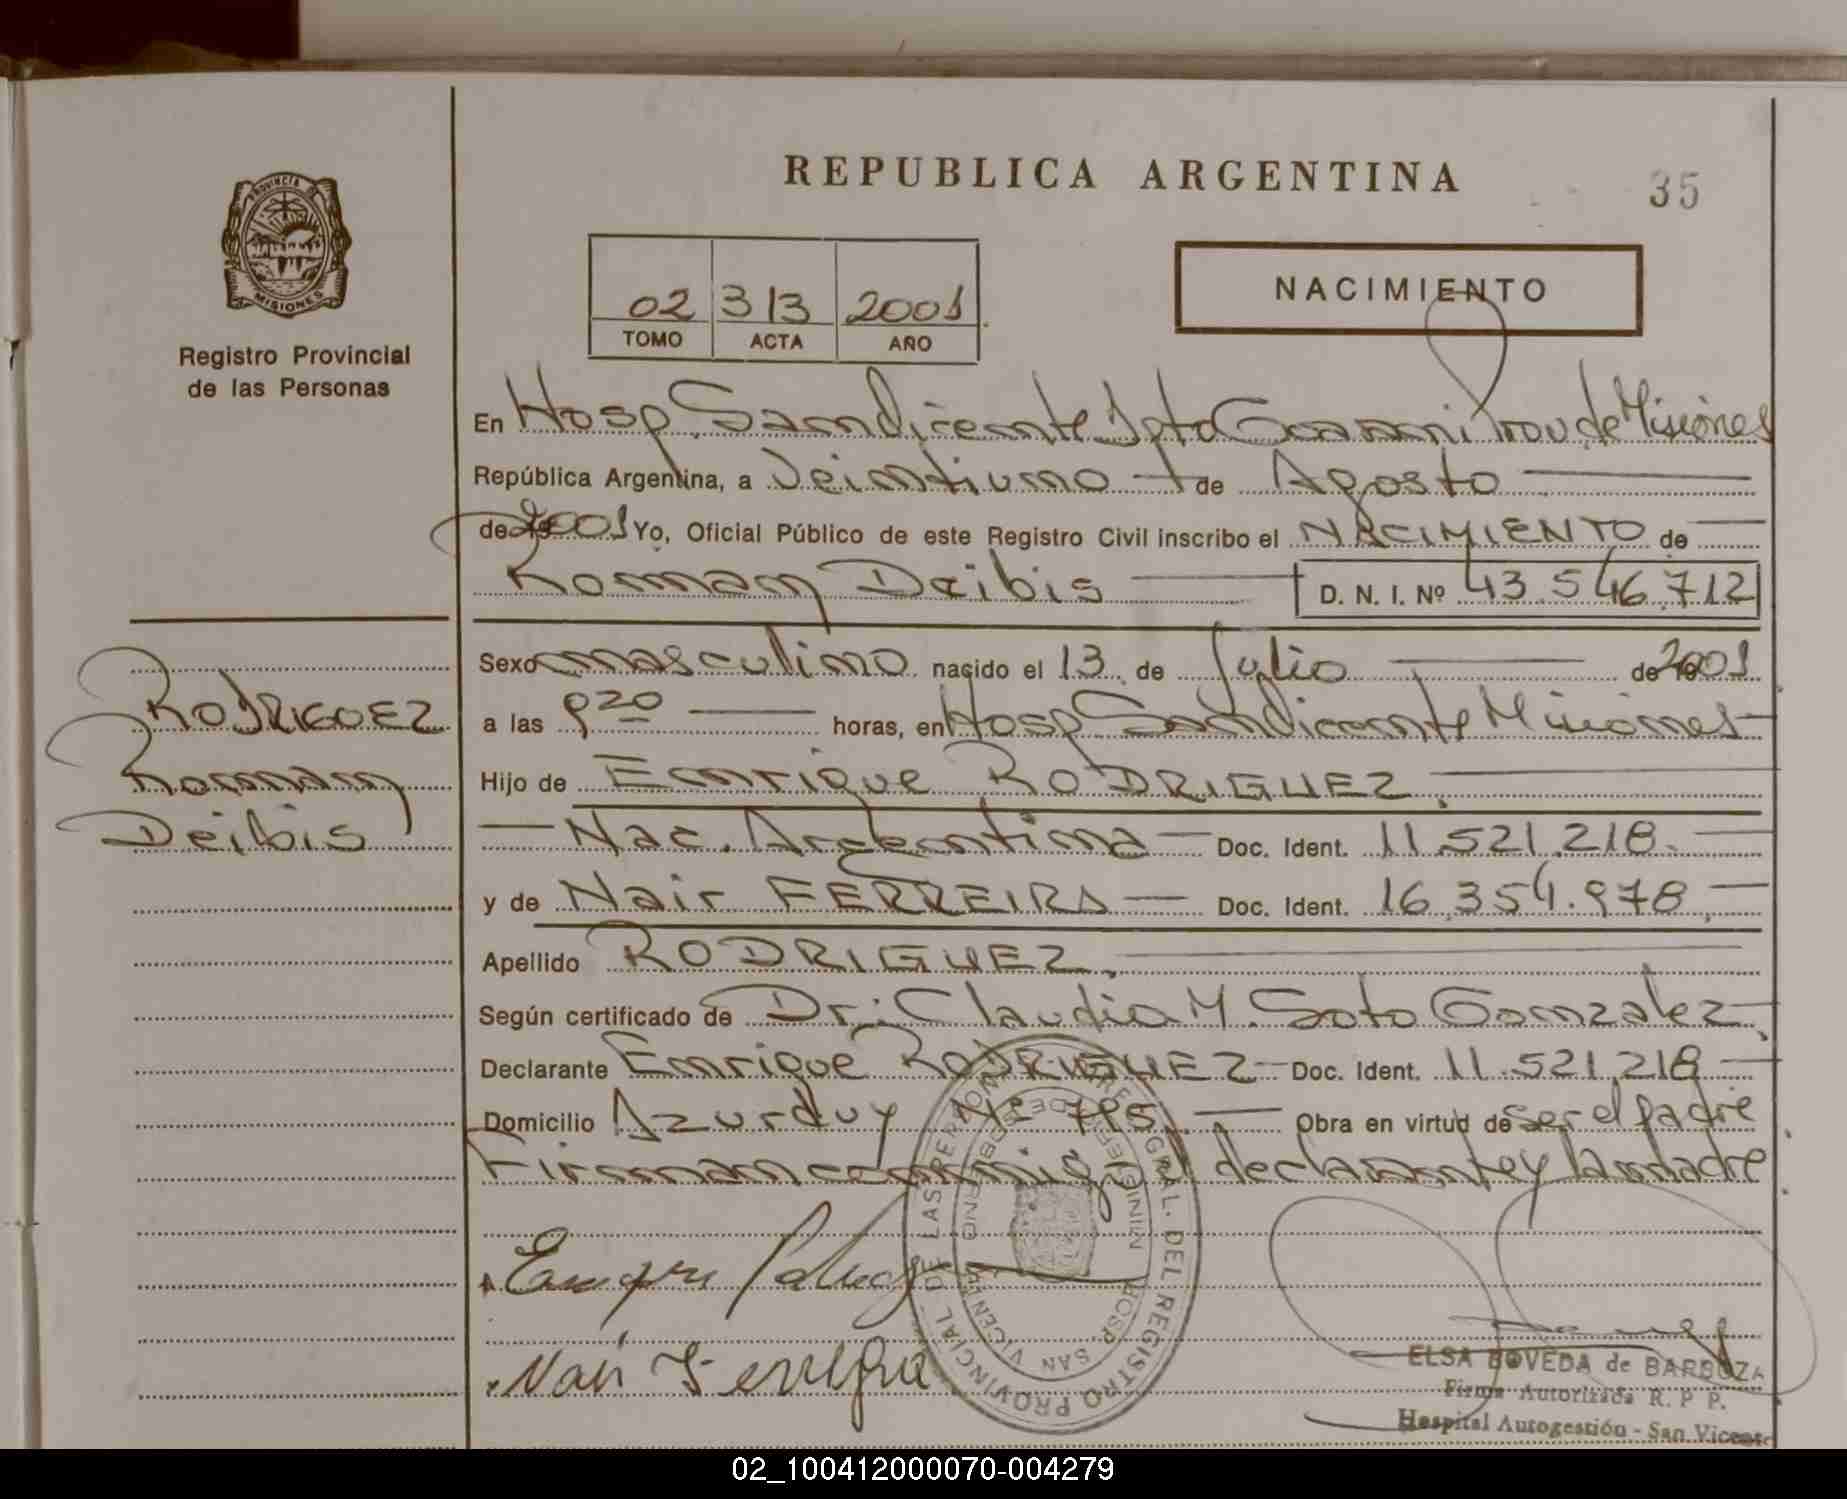 REPUBLICA ARGENTINA
35
PROVINCIA DE
MISIONES
Registro Provincial
de las Personas
02 313 2001
TOMO ACTA AÑO
NACIMIENTO
En Hosp. San Vicente Dpto Guarani Prov. de Misiones
República Argentina, a Veintiuno de Agosto
de 2001 Yo, Oficial Público de este Registro Civil inscribo el NACIMIENTO de
Roman Deibis D. N. I. Nº 43.546.712
Sexo masculino nacido el 13 de Julio de 2001
a las 920 horas, en Hosp San Vicente Misiones
Hijo de Enrique RODRIGUEZ.
Nac. Argentina Doc. Ident. 11.521.218.
y de Nair FERREIRA Doc. Ident. 16.354.978
Apellido RODRIGUEZ.
Según certificado de Dr: Claudia M. Soto Gonzalez
Declarante Enrique RODRIGUEZ Doc. Ident. 11.521.218
Domicilio Azurduy Nº 795 Obra en virtud de ser el padre
Firman conmigo el declarante y la madre
RODRIGUEZ
Roman
Deibis
REGISTRO PROVINCIAL DE LAS PERSONAS
HOSP. SAN VICENTE
ELSA BOVEDA de BARBOZA
Firma Autorizada R. P. P.
Hospital Autogestión - San Vicente
02_100412000070-004279